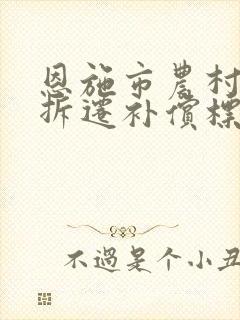 恩施市農村
拆遷补償標
不過是个小丑